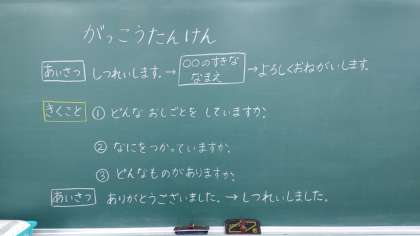 がっこうたんけん
あいさつ しつれいします。→ 〇〇のすきな なまえ →よろしくおねがいします。
きくこと ① どんな おしごとを していますか。
② なにをつかっていますか。
③ どんなものがありますか。
あいさつ ありがとうございました。→ しつれいしました。